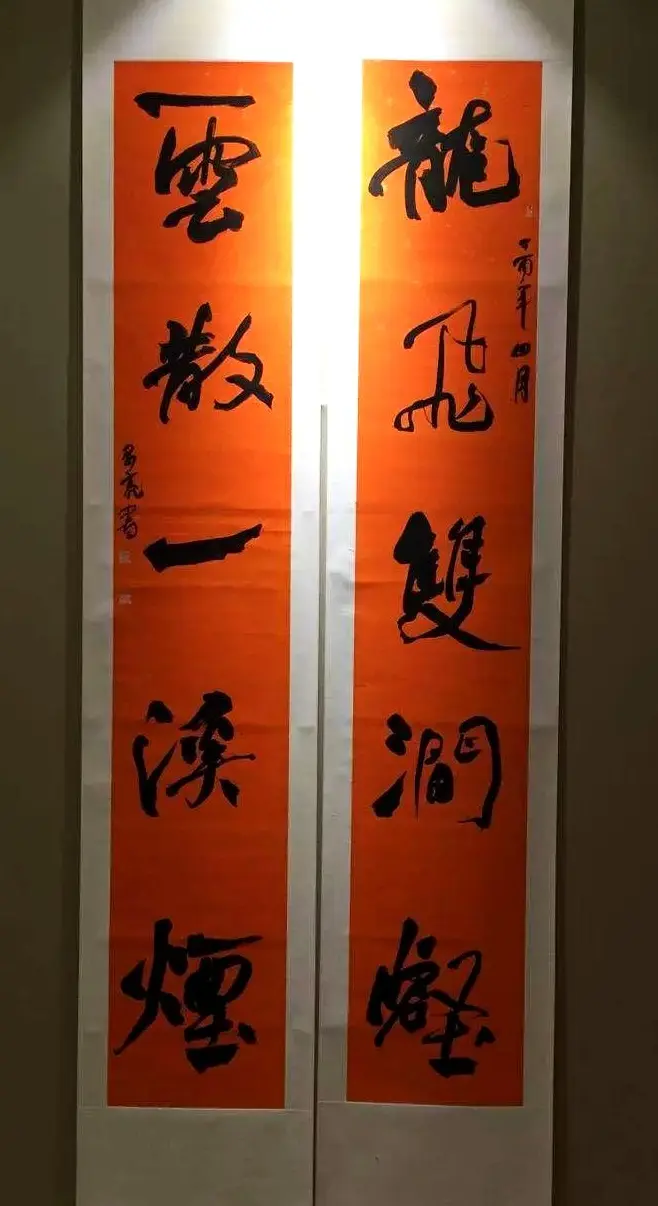 龍飛雙澗壑
丁酉年四月
雲散一溪煙
亮書